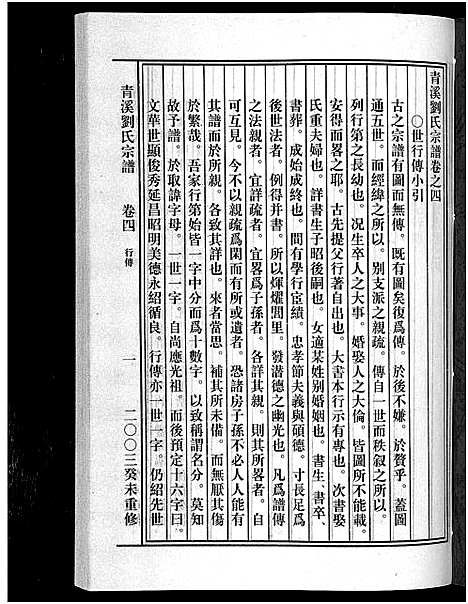 青溪劉氏宗譜卷之四
〇世行傳小引
古之宗譜有圖而無傳。既有圖矣復爲傳。於後不嫌。於贅乎。蓋圖
通五世。而經緯之所以。別支派之親疏。傳自一世而秩叙之所以。
列行第之長幼也。况生卒人之大事。婚娶人之大倫。皆圖所不能載。
安得而畧之耶。古先提父行著自出也。大書本行示有專也。次書娶
氏重夫婦也。詳書生子昭後嗣也。女適某姓别婚姻也。書生、書卒、
書葬。成始成終也。間有學行宦績。忠孝節夫義與碩德。寸長足爲
後世法者。例得并書。所以煇燿閭里。發潜德之幽光也。凡爲譜傳
之法親者。宜詳疏者。宜畧爲子孫者。各詳其親者。則其所畧者。自
可互見。今不以親疏爲閑而有所或遺者。恐諸房子孫不必人人能有
其譜而於所親。各致其詳也。來者當思。補其所未備。而無厭其傷
於繁哉。吾家行第始皆一字中分而爲十數字。以致稱謂名分。莫知
故予譜。於取諱字母。一世一字。自尚應光祖。而後預定十六字曰。
文華世顯俊秀延昌昭明美德永紹循良。行傳亦一世一字。仍紹先世
青溪劉氏宗譜
卷四
行傳
一
二〇〇三癸未重修